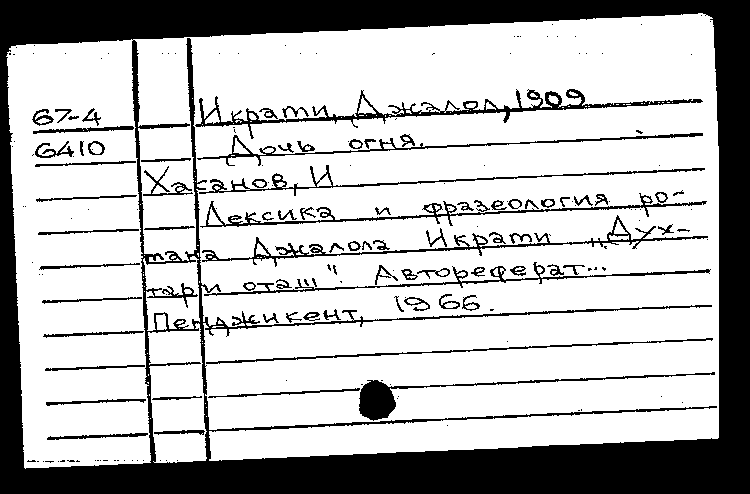 67-4 Икрати, Джалол, 1909
6410 Дочь огня.
Хасанов, И
Лексика и фразеология ро-
мана Джалола Икрати „Дух-
тари оташ". Автореферат...
Пенджикент, 1966.